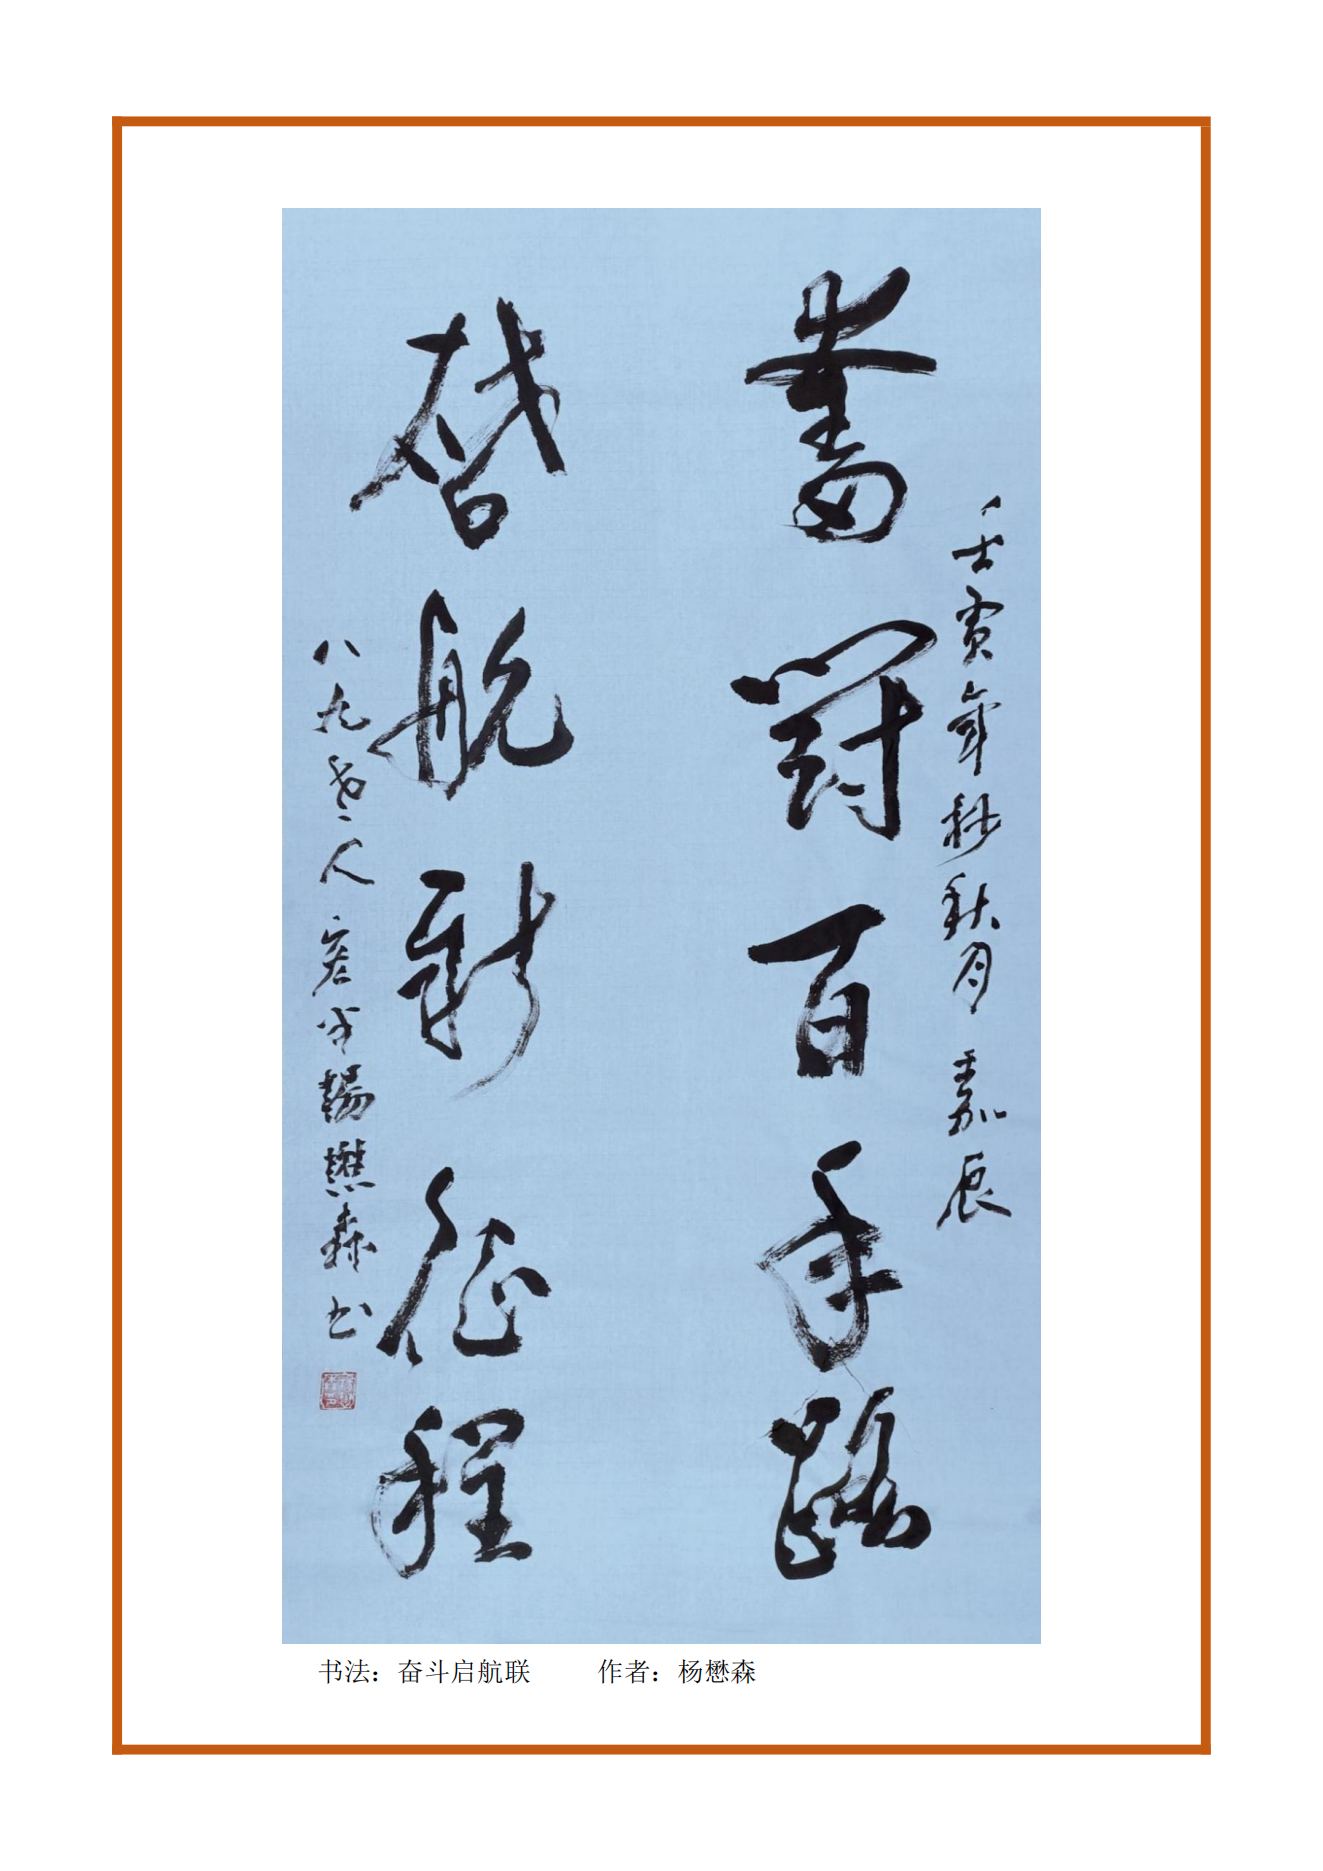 奮鬥百年路
壬寅年秒秋月 嘉辰
啓航新征程
八九老人宏才楊懋森书
书法：奋斗启航联 作者：杨懋森